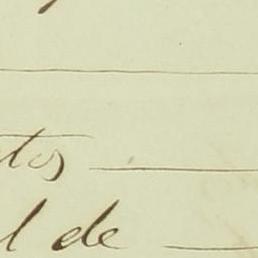 tos
l de